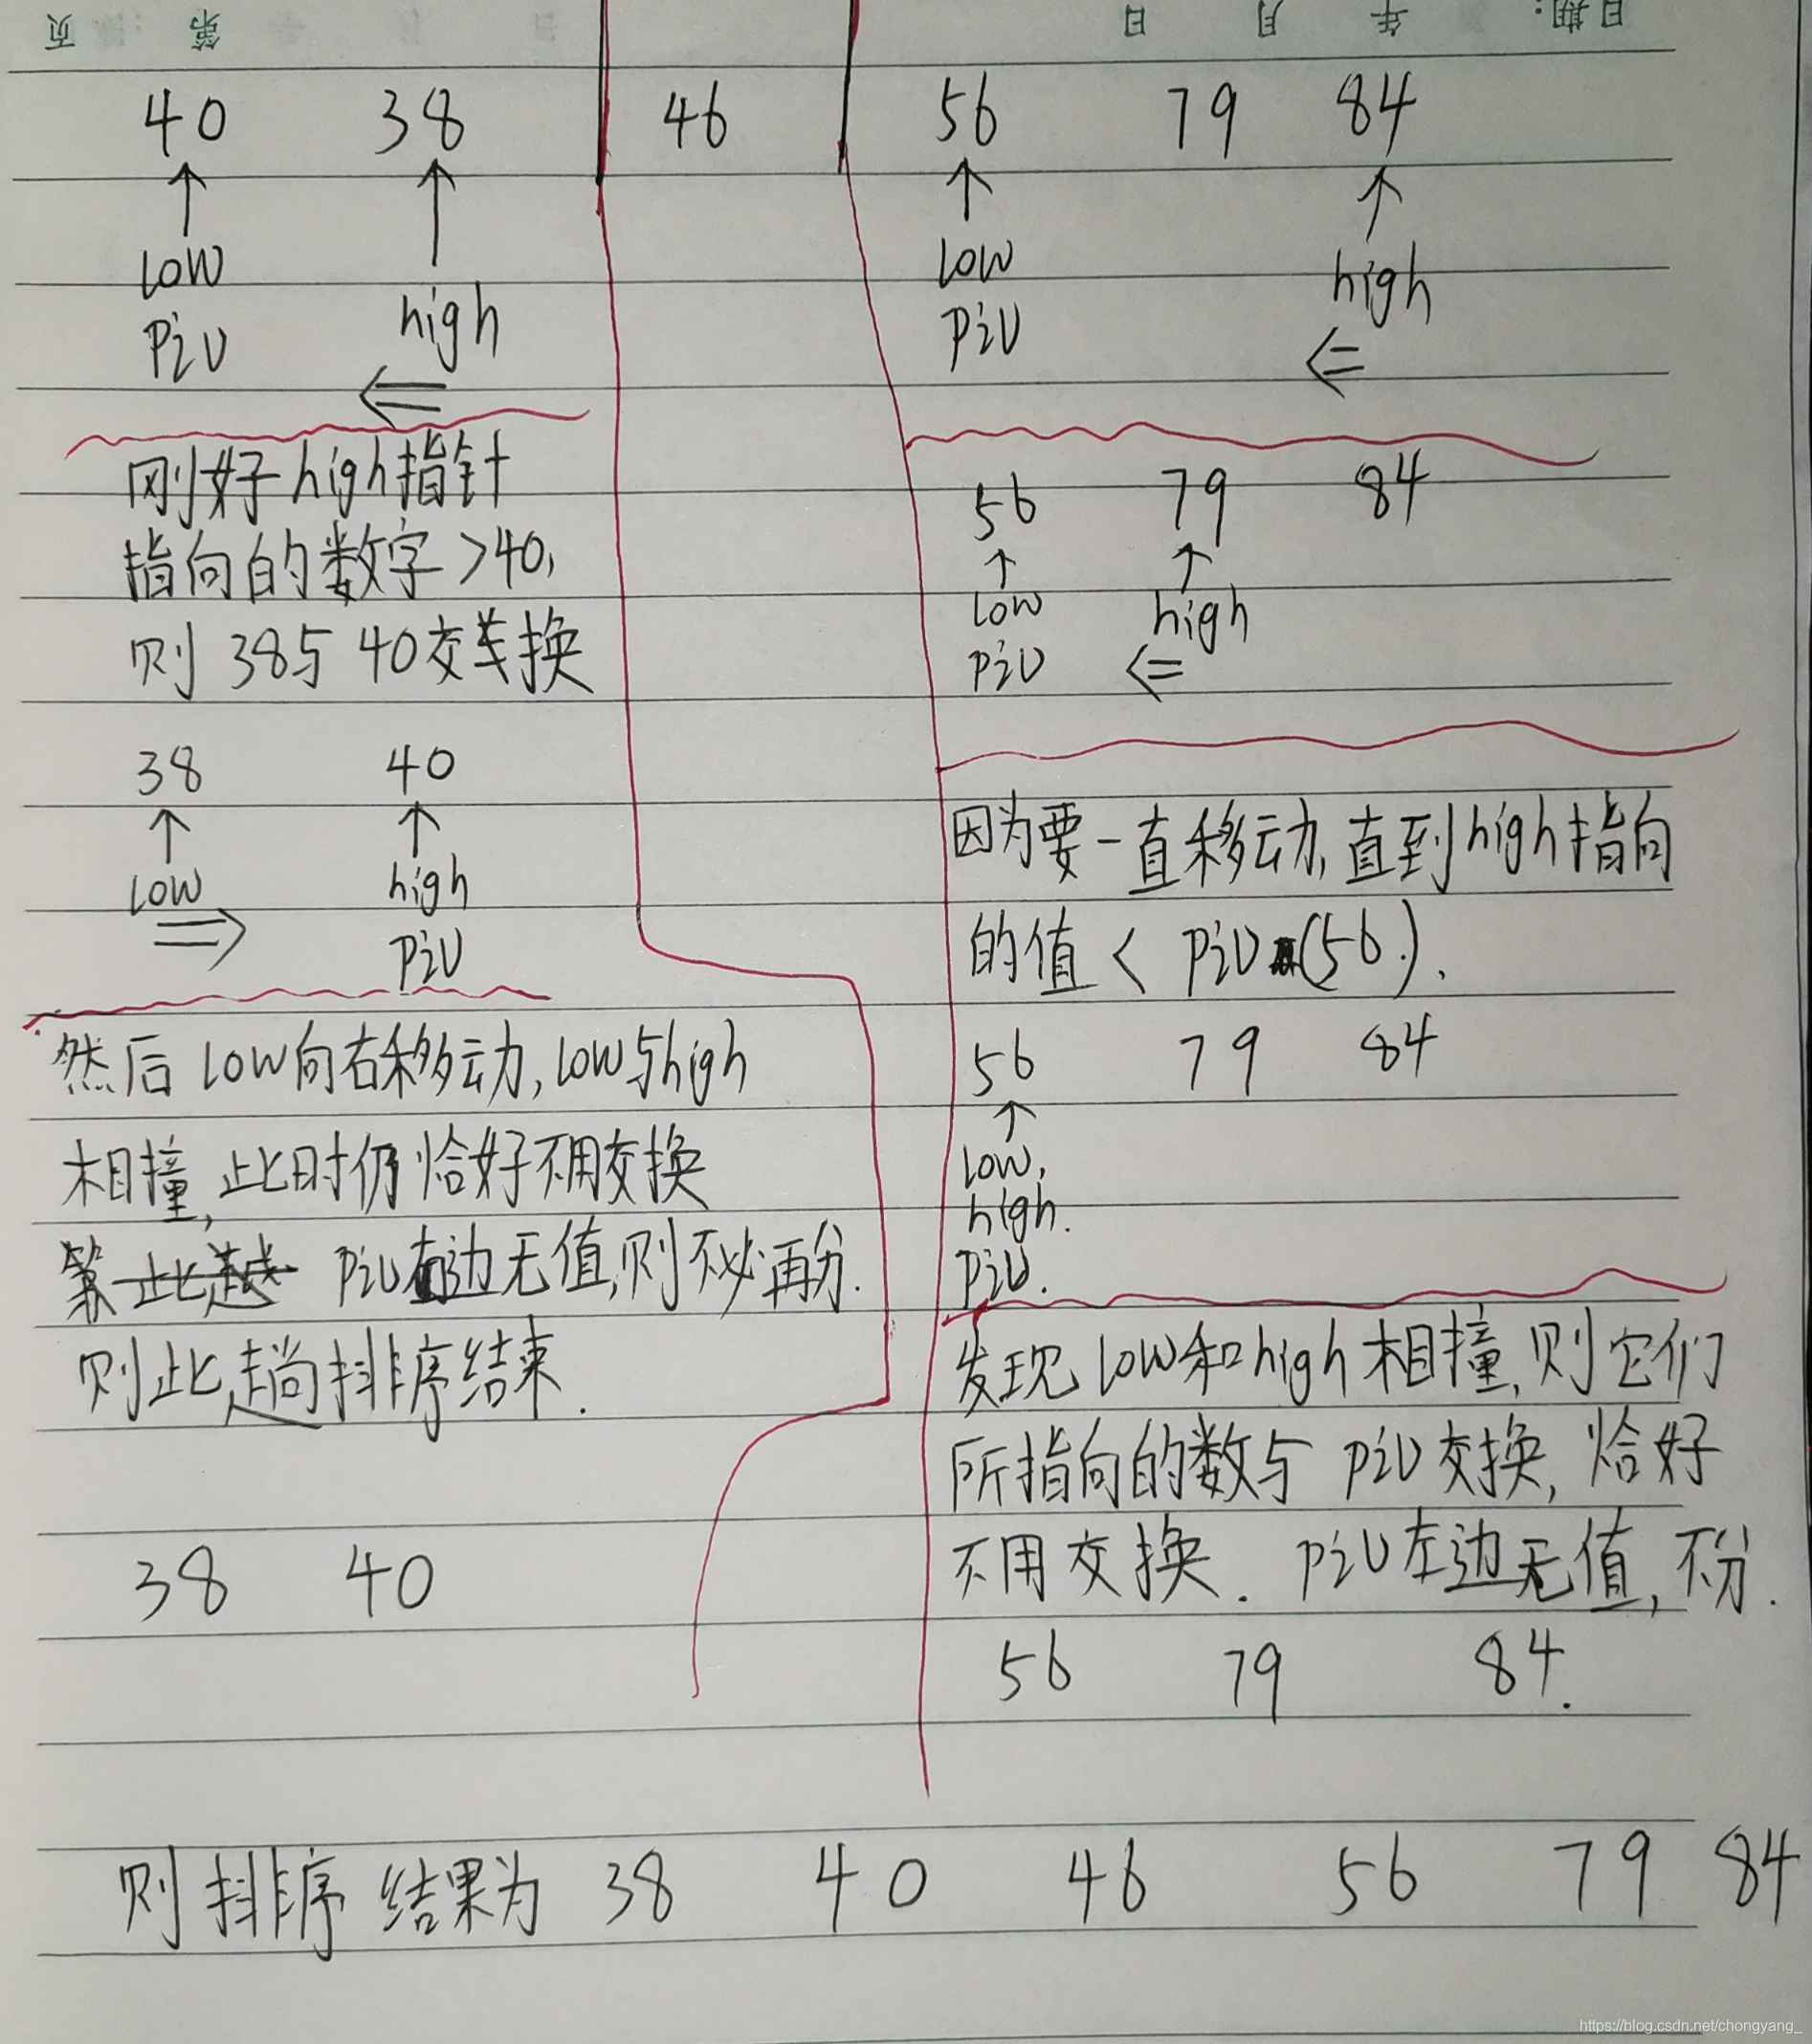 日期： 年 月 日 第 页
40 38 46 56 79 84
low high
piv
刚好high指针
指向的数字>40,
则 38与 40交换
38 40
low high
piv
然后 low向右移动,low与high
相撞,此时仍恰好不用交换
piv右边无值,则不必再分.
则此趟排序结束.
38 40
low high
piv
56 79 84
low high
piv
因为要一直移动,直到high指向
的值 < piv (56.).
56 79 84
low,
high.
piv.
发现 low和high相撞,则它们
所指向的数与 piv交换, 恰好
不用交换. piv左边无值,不分.
56 79 84.
则排序 结果为 38 40 46 56 79 84
https://blog.csdn.net/chongyang_